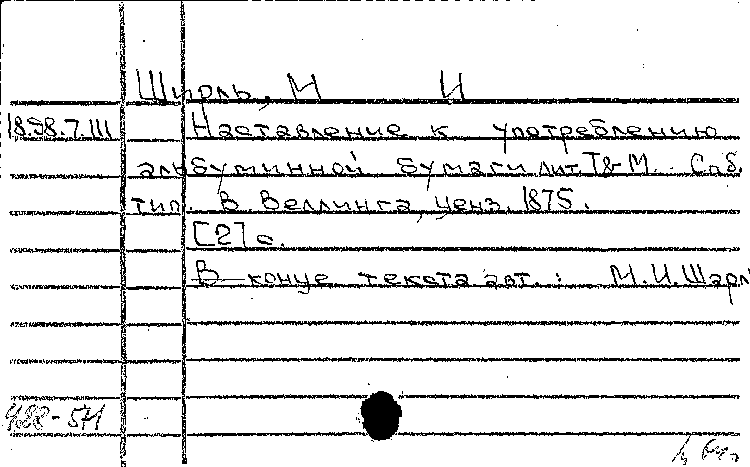 Ширль, М И
18.98.7.III Наставление к употреблению
альбуминной бумаги лит. T&M. Спб.
тип. В. Веллинга, ценз. 1875.
[2] с.
В конце текста авт.: М.И. Шарл